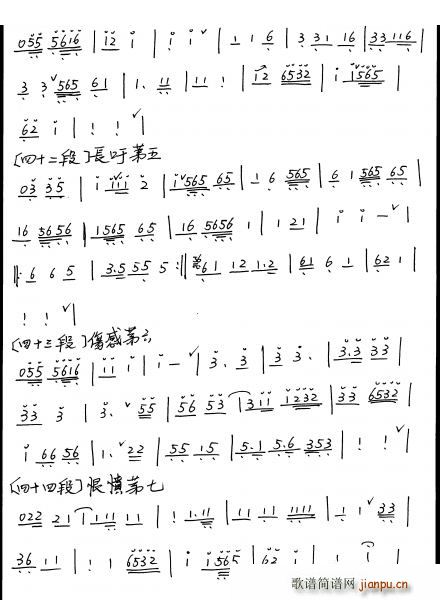 055 5616 | i2 i | i i ˅ | 1 1 6 | 3 31 16 | 33116 |
3 3˅565 61 | 1. 11 | 11 1 | i2 6532 | i 1565 |
62 i | 1 1 ˅ |
[四十二段]長吁第五
03 35 | i iii 2 | i˅565 65 | 1 6 565 | 6 1 565 65 |
16 5656 | 1565 65 | 16 5656 1 | 1 21 | i i — ˅ |
‖: 6 6 5 | 3.5 55 5 :‖ 61 12 1.2 | 61 6 1 | 62 1 |
1 1 ˅ |
[四十三段]傷感第六
055 5616 | i i i | i — ˅ | 3. 3 | 3 3. | 3.3 33 |
33 3 | 3. ˅55 | 56 53 | 311 1232 | 33 6532 |
i 66 56 | 1. ˅22 | 55 15 | 5.1 5.6 353 | 1 1 ˅ |
[四十四段]恨憤第七
022 21 | 1 11 11 | 1 1.11 | 11 11 1111 | 1 1 ˅ 33 |
36 11 | 1 1 6532 | i i565 | 62 i | 1 i |
歌谱简谱网 jianpu.cn